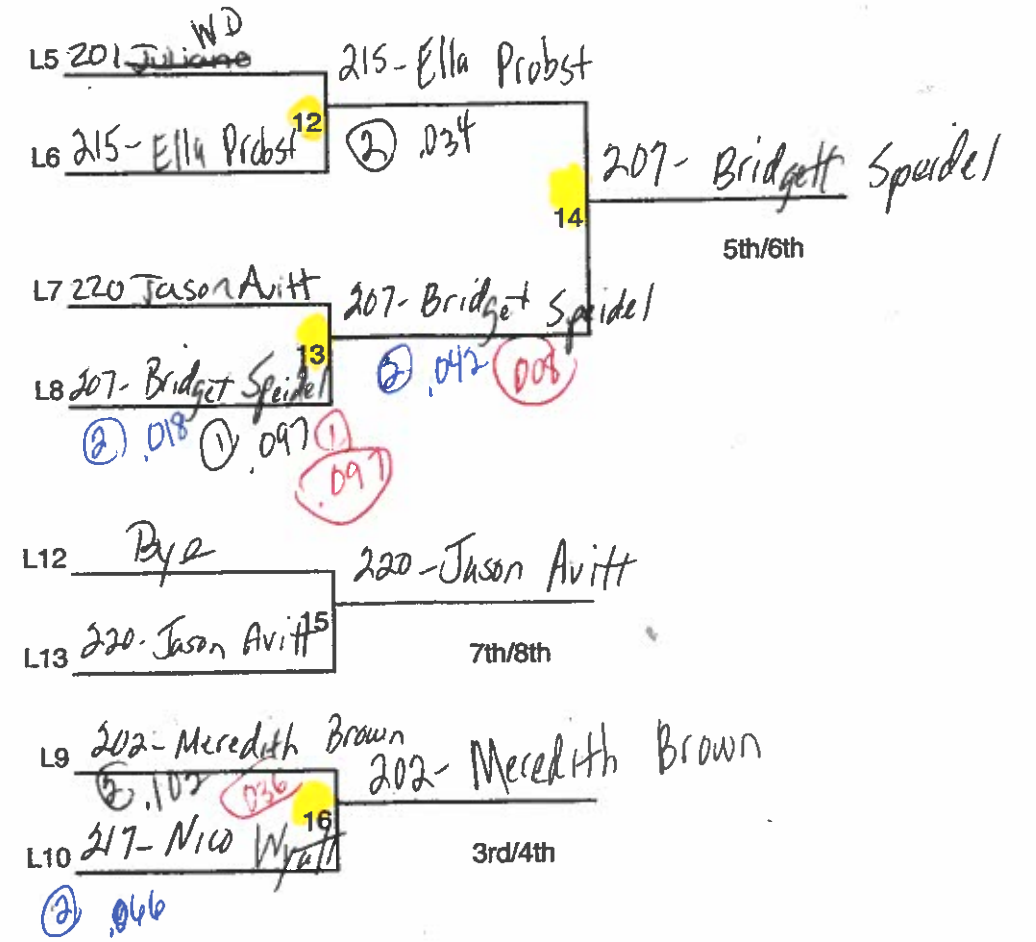 WD
L5 201 Juliane
215- Ella Probst
12
L6 215- Ella Probst
2 .034
14
207- Bridgett Speidel
5th/6th
L7 220 Jason Avitt
207- Bridget Speidel
13
L8 207- Bridget Speidel
2 .042 .008
2 .018 1 .097 1
.097
L12 Bye
220-Jason Avitt
15
L13 220- Jason Avitt
7th/8th
L9 202- Meredith Brown
202- Meredith Brown
2 .102 .036
16
L10 217- Nico Wyatt
3rd/4th
2 .066